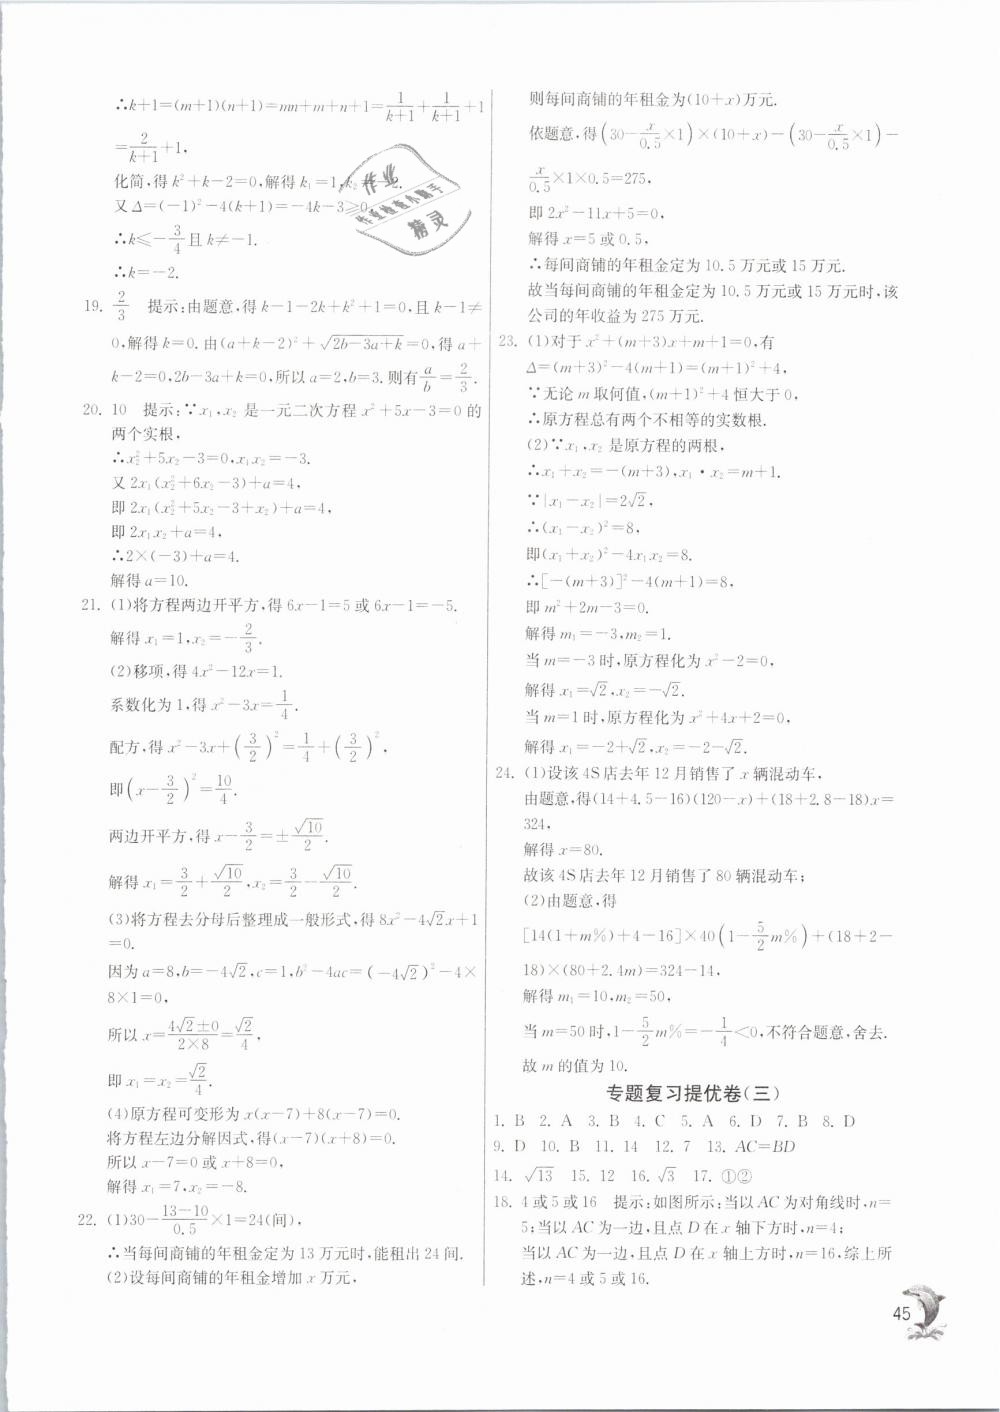 ∴k+1=(m+1)(n+1)=mn+m+n+1=1/(k+1)+1/(k+1)+1
=2/(k+1)+1,
化简,得k²+k-2=0,解得k₁=1,k₂=-2.
又Δ=(-1)²-4(k+1)=-4k-3≥0,
∴k≤-3/4且k≠-1.
∴k=-2.
19. 2/3 提示:由题意,得k-1-2k+k²+1=0,且k-1≠
0,解得k=0.由(a+k-2)²+√(2b-3a+k)=0,得a+
k-2=0,2b-3a+k=0,所以a=2,b=3.则有a/b=2/3.
20. 10 提示:∵x₁,x₂是一元二次方程x²+5x-3=0的
两个实根,
∴x₂²+5x₂-3=0,x₁x₂=-3.
又2x₁(x₂²+6x₂-3)+a=4,
即2x₁(x₂²+5x₂-3+x₂)+a=4,
即2x₁x₂+a=4,
∴2×(-3)+a=4.
解得a=10.
21. (1)将方程两边开平方,得6x-1=5或6x-1=-5.
解得x₁=1,x₂=-2/3.
(2)移项,得4x²-12x=1.
系数化为1,得x²-3x=1/4.
配方,得x²-3x+(3/2)²=1/4+(3/2)²,
即(x-3/2)²=10/4.
两边开平方,得x-3/2=±√10/2.
解得x₁=3/2+√10/2,x₂=3/2-√10/2.
(3)将方程去分母后整理成一般形式,得8x²-4√2x+1
=0.
因为a=8,b=-4√2,c=1,b²-4ac=(-4√2)²-4×
8×1=0,
所以x=(4√2±0)/(2×8)=√2/4,
即x₁=x₂=√2/4.
(4)原方程可变形为x(x-7)+8(x-7)=0.
将方程左边分解因式,得(x-7)(x+8)=0.
所以x-7=0或x+8=0,
解得x₁=7,x₂=-8.
22. (1)30-(13-10)/0.5×1=24(间),
∴当每间商铺的年租金定为13万元时,能租出24间.
(2)设每间商铺的年租金增加x万元,
则每间商铺的年租金为(10+x)万元.
依题意,得(30-x/0.5×1)×(10+x)-(30-x/0.5×1)-
x/0.5×1×0.5=275,
即2x²-11x+5=0,
解得x=5或0.5,
∴每间商铺的年租金定为10.5万元或15万元.
故当每间商铺的年租金定为10.5万元或15万元时,该
公司的年收益为275万元.
23. (1)对于x²+(m+3)x+m+1=0,有
Δ=(m+3)²-4(m+1)=(m+1)²+4,
∵无论m取何值,(m+1)²+4恒大于0,
∴原方程总有两个不相等的实数根.
(2)∵x₁,x₂是原方程的两根,
∴x₁+x₂=-(m+3),x₁·x₂=m+1.
∵|x₁-x₂|=2√2,
∴(x₁-x₂)²=8,
即(x₁+x₂)²-4x₁x₂=8.
∴[-(m+3)]²-4(m+1)=8,
即m²+2m-3=0.
解得m₁=-3,m₂=1.
当m=-3时,原方程化为x²-2=0,
解得x₁=√2,x₂=-√2.
当m=1时,原方程化为x²+4x+2=0,
解得x₁=-2+√2,x₂=-2-√2.
24. (1)设该4S店去年12月销售了x辆混动车,
由题意,得(14+4.5-16)(120-x)+(18+2.8-18)x=
324,
解得x=80.
故该4S店去年12月销售了80辆混动车;
(2)由题意,得
[14(1+m%)+4-16]×40(1-5/2m%)+(18+2-
18)×(80+2.4m)=324-14,
解得m₁=10,m₂=50,
当m=50时,1-5/2m%=-1/4<0,不符合题意,舍去.
故m的值为10.
专题复习提优卷(三)
1. B 2. A 3. B 4. C 5. A 6. D 7. B 8. D
9. D 10. B 11. 14 12. 7 13. AC=BD
14. √13 15. 12 16. √3 17. ①②
18. 4或5或16 提示:如图所示:当以AC为对角线时,n=
5;当以AC为一边,且点D在x轴下方时,n=4;
当以AC为一边,且点D在x轴上方时,n=16,综上所
述,n=4或5或16.
作业
作业检查小助手
精灵
45